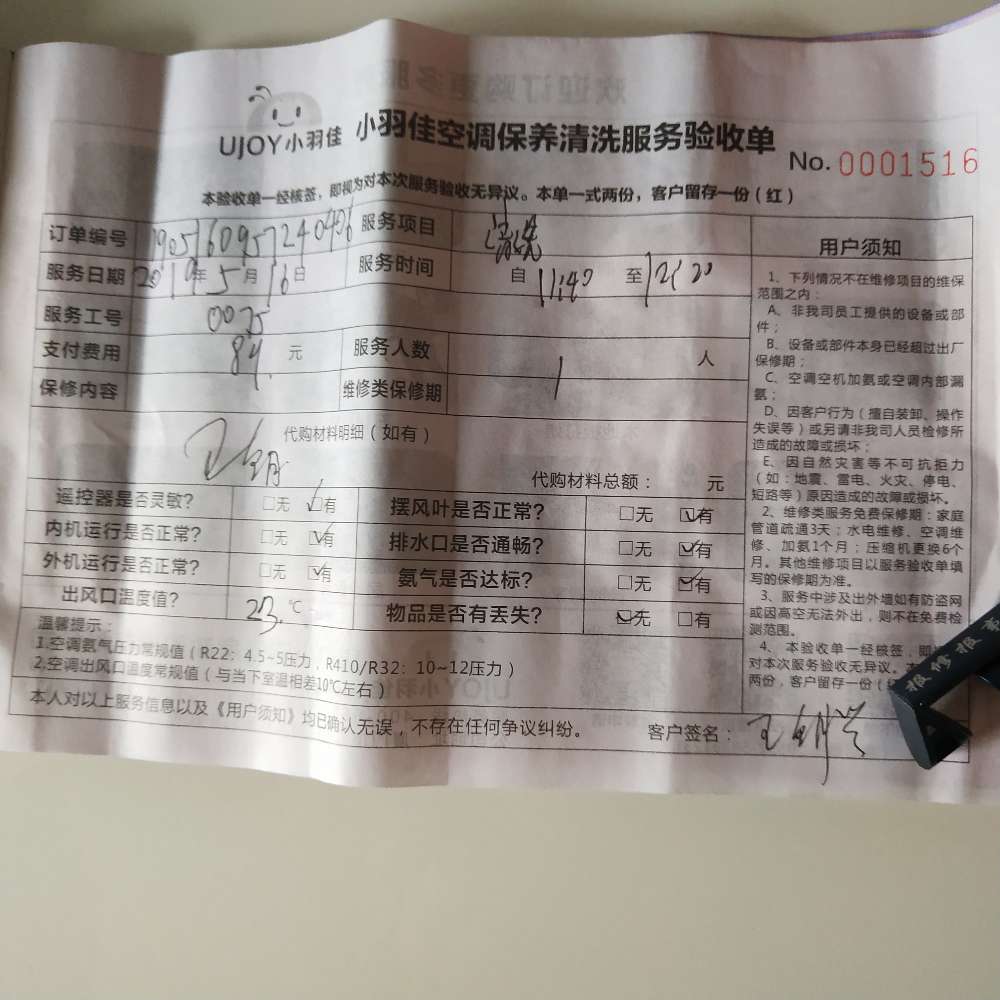 UJOY小羽佳 小羽佳空调保养清洗服务验收单
No. 0001516
本验收单一经核签，即视为对本次服务验收无异议。本单一式两份，客户留存一份（红）
订单编号 服务项目 清洗
服务日期 2019年5月16日 服务时间 自 11:40 至 12:20
服务工号 0075
支付费用 84. 元 服务人数 1 人
保修内容 维修类保修期
代购材料明细（如有）
代购材料总额： 元
遥控器是否灵敏? □无 □有 摆风叶是否正常? □无 □有
内机运行是否正常? □无 □有 排水口是否通畅? □无 □有
外机运行是否正常? □无 □有 氨气是否达标? □无 □有
出风口温度值? 23. ℃ 物品是否有丢失? □无 □有
温馨提示：
1.空调氨气压力常规值（R22：4.5~5压力，R410/R32：10~12压力）
2.空调出风口温度常规值（与当下室温相差10℃左右）
本人对以上服务信息以及《用户须知》均已确认无误，不存在任何争议纠纷。 客户签名：
用户须知
1、下列情况不在维修项目的维保
范围之内：
A、非我司员工提供的设备或部
件；
B、设备或部件本身已经超过出厂
保修期；
C、空调空机加氨或空调内部漏
氨；
D、因客户行为（擅自装卸、操作
失误等）或另请非我司人员检修所
造成的故障或损坏；
E、因自然灾害等不可抗拒力
（如：地震、雷电、火灾、停电、
短路等）原因造成的故障或损坏。
2、维修类服务免费保修期：家庭
管道疏通3天；水电维修、空调维
修、加氨1个月；压缩机更换6个
月。其他维修项目以服务验收单填
写的保修期为准。
3、服务中涉及出外墙如有防盗网
或因高空无法外出，则不在免费检
测范围。
4、本验收单一经核签，即
对本次服务验收无异议。
两份，客户留存一份
报修报事